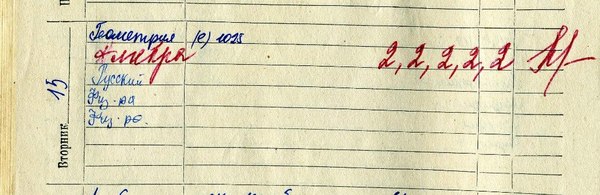 Вторник 15
Геометрия (с) 1025
Алгебра 2, 2, 2, 2, 2
Русский
Физ-ра
Физ-ра.